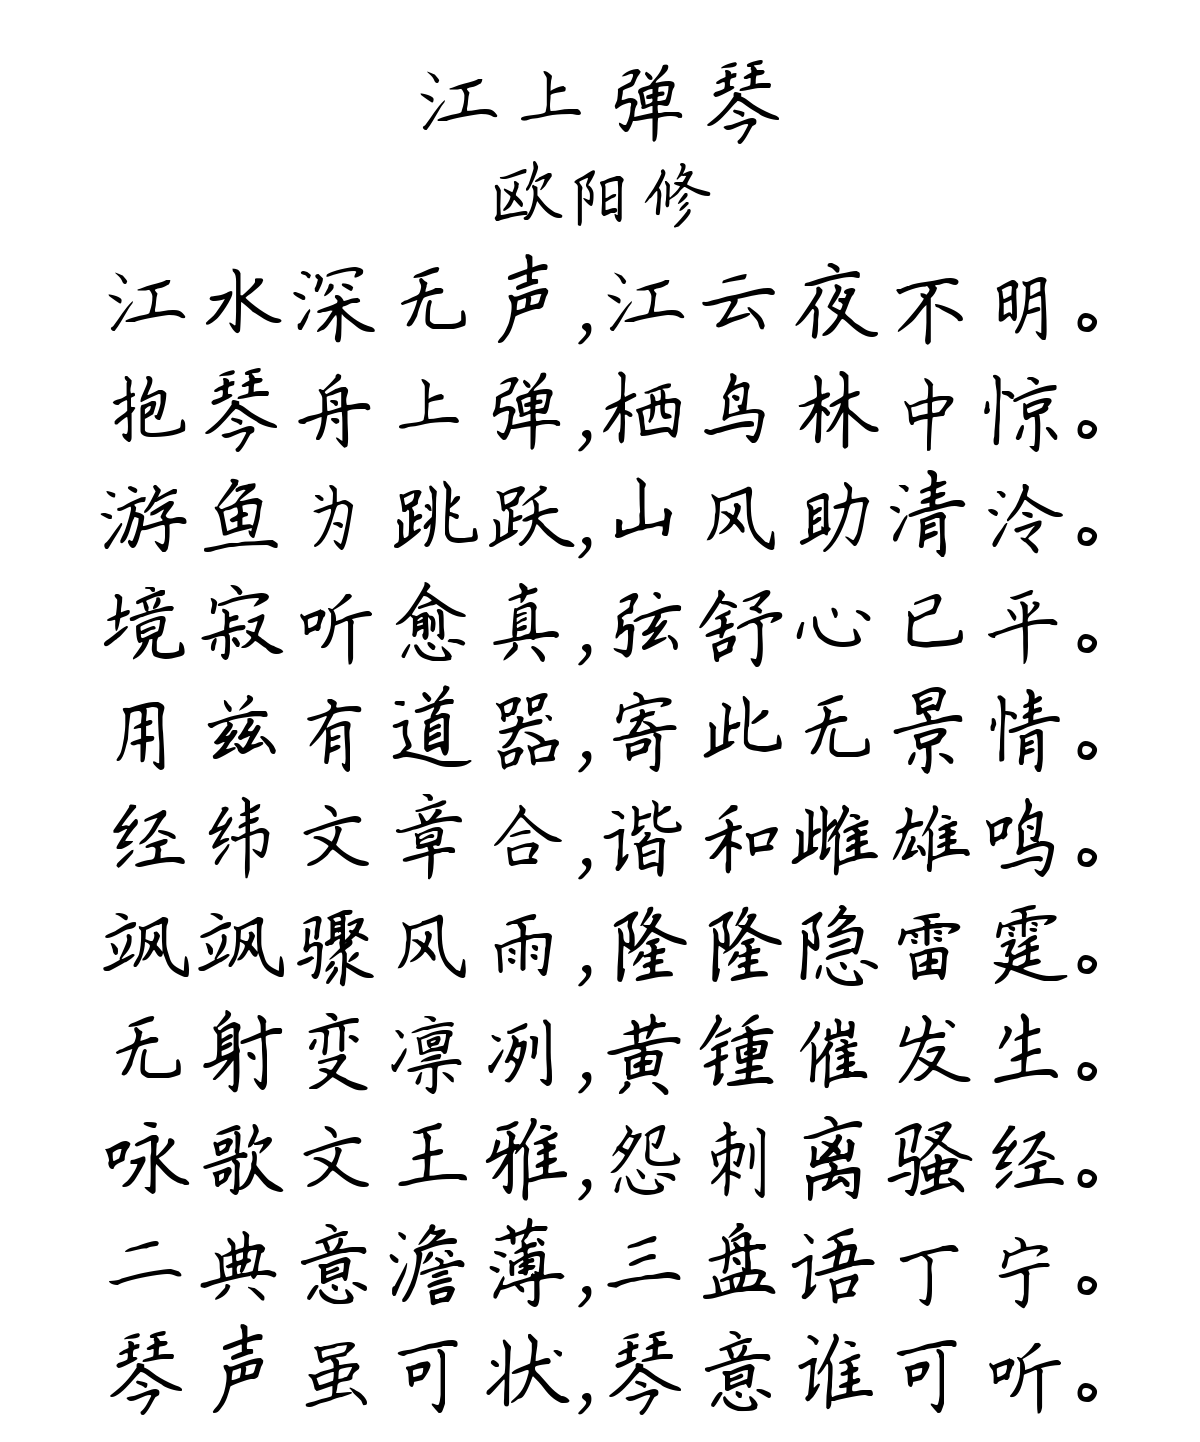 江上弹琴
欧阳修
江水深无声,江云夜不明。
抱琴舟上弹,栖鸟林中惊。
游鱼为跳跃,山风助清泠。
境寂听愈真,弦舒心已平。
用兹有道器,寄此无景情。
经纬文章合,谐和雌雄鸣。
飒飒骤风雨,隆隆隐雷霆。
无射变凛冽,黄锺催发生。
咏歌文王雅,怨刺离骚经。
二典意澹薄,三盘语丁宁。
琴声虽可状,琴意谁可听。